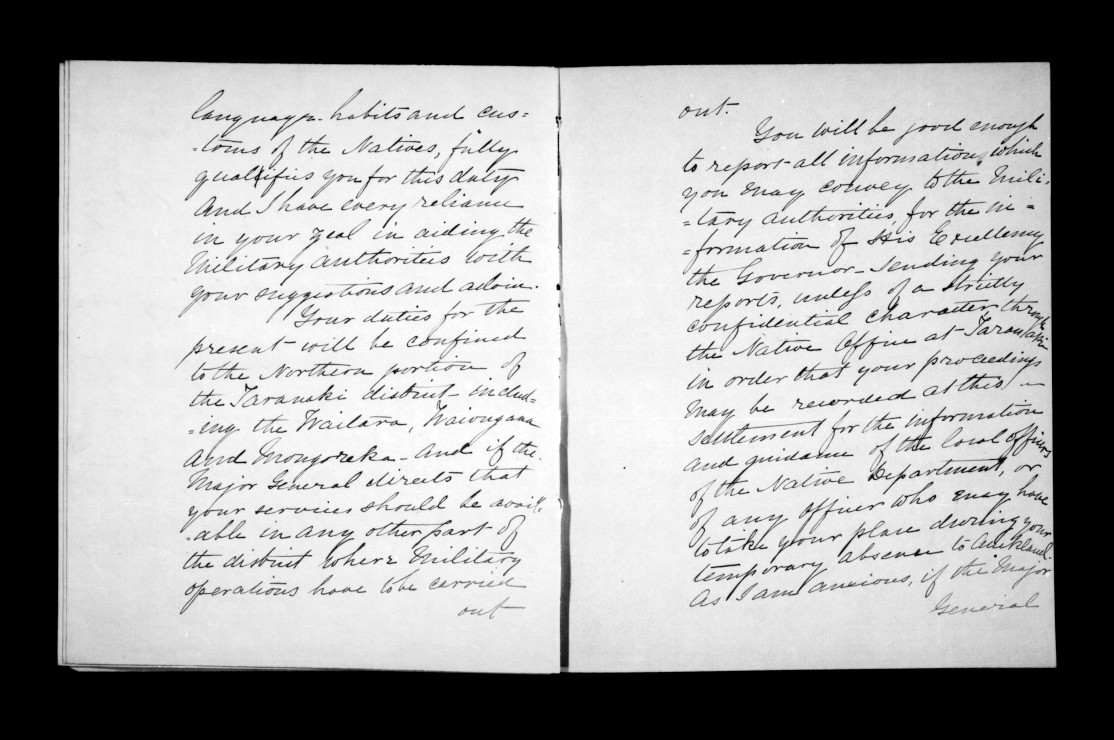 language. habits and cus=
=toms of the Natives, fully
qualifies you for this duty
and I have every reliance
in your zeal in aiding the
Military authorities with
your suggestions and advice.
Your duties for the
present will be confined
to the Northern portion of
the Taranaki district - includ=
=ing the Waitara, Waiongana
and Mongoraka - And if the
Major General directs that
your services should be avail=
=able in any other part of
the district where Military
operations have to be carried
out
out.
You will be good enough
to report all information, which
you may convey to the Mili=
=tary authorities, for the in=
=formation of His Excellency
the Governor - sending your
reports, unless of a strictly
confidential character, through
the Native Office at Taranaki
in order that your proceedings
may be recorded at this -
settlement for the information
and guidance of the local officers
of the Native Department, or
of any officer who may have
to take your place during your
temporary absence to Auckland.
As I am anxious, if the Major
General